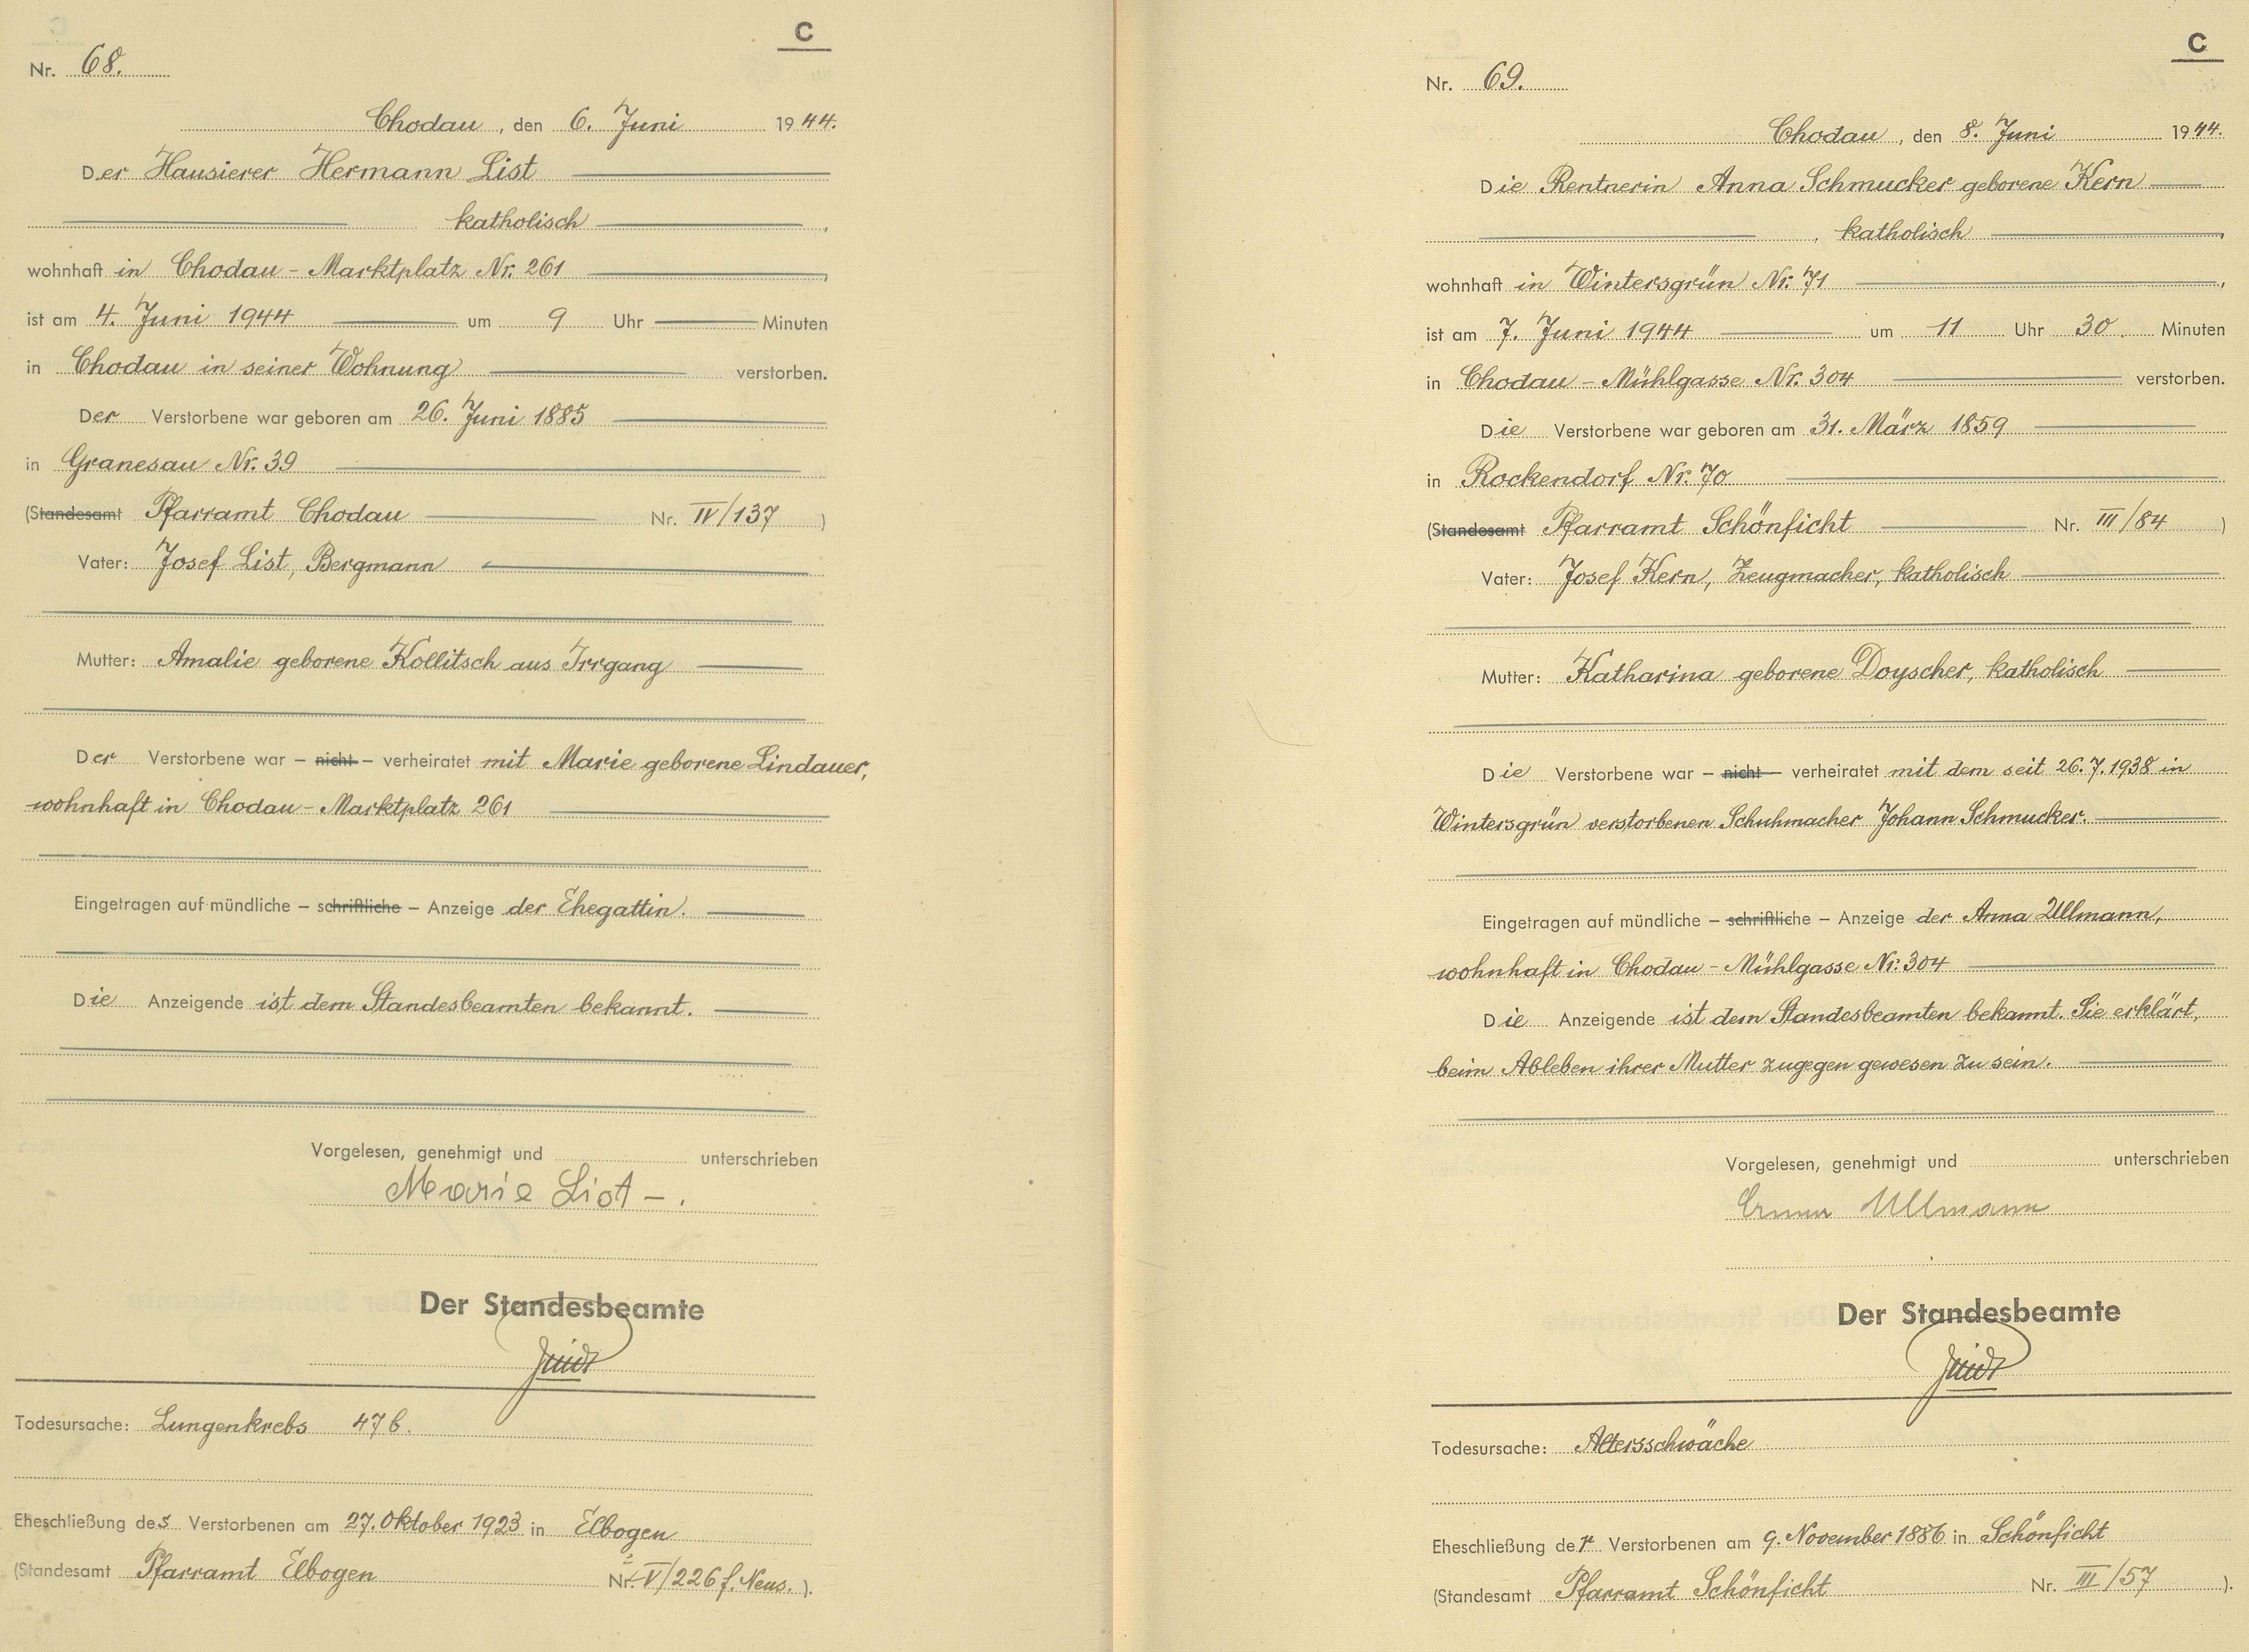 C
Nr. 68.
Chodau, den 6. Juni 1944.
Der Hausierer Hermann List
katholisch,
wohnhaft in Chodau - Marktplatz Nr. 261,
ist am 4. Juni 1944 um 9 Uhr Minuten
in Chodau in seiner Wohnung verstorben.
Der Verstorbene war geboren am 26. Juni 1885
in Granesau Nr. 39
(Standesamt Pfarramt Chodau Nr. IV/137)
Vater: Josef List, Bergmann
Mutter: Amalie geborene Kollitsch aus Irrgang
Der Verstorbene war – nicht – verheiratet mit Marie geborene Lindauer,
wohnhaft in Chodau - Marktplatz 261
Eingetragen auf mündliche – schriftliche – Anzeige der Ehegattin.
Die Anzeigende ist dem Standesbeamten bekannt.
Vorgelesen, genehmigt und unterschrieben
Marie List -.
Der Standesbeamte
Todesursache: Lungenkrebs 47b.
Eheschließung des Verstorbenen am 27. Oktober 1923 in Elbogen
(Standesamt Pfarramt Elbogen Nr. V/226 f. Neus.).
C
Nr. 69.
Chodau, den 8. Juni 1944.
Die Rentnerin Anna Schmucker geborene Kern
, katholisch,
wohnhaft in Wintersgrün Nr. 71,
ist am 7. Juni 1944 um 11 Uhr 30 Minuten
in Chodau - Mühlgasse Nr. 304 verstorben.
Die Verstorbene war geboren am 31. März 1859
in Rockendorf Nr. 70
(Standesamt Pfarramt Schönficht Nr. III/84)
Vater: Josef Kern, Zeugmacher, katholisch
Mutter: Katharina geborene Doyscher, katholisch
Die Verstorbene war – nicht – verheiratet mit dem seit 26.7.1938 in
Wintersgrün verstorbenen Schuhmacher Johann Schmucker.
Eingetragen auf mündliche – schriftliche – Anzeige der Anna Ullmann,
wohnhaft in Chodau - Mühlgasse Nr. 304
Die Anzeigende ist dem Standesbeamten bekannt. Sie erklärt,
beim Ableben ihrer Mutter zugegen gewesen zu sein.
Vorgelesen, genehmigt und unterschrieben
Anna Ullmann
Der Standesbeamte
Todesursache: Altersschwäche
Eheschließung der Verstorbenen am 9. November 1886 in Schönficht
(Standesamt Pfarramt Schönficht Nr. III/57).